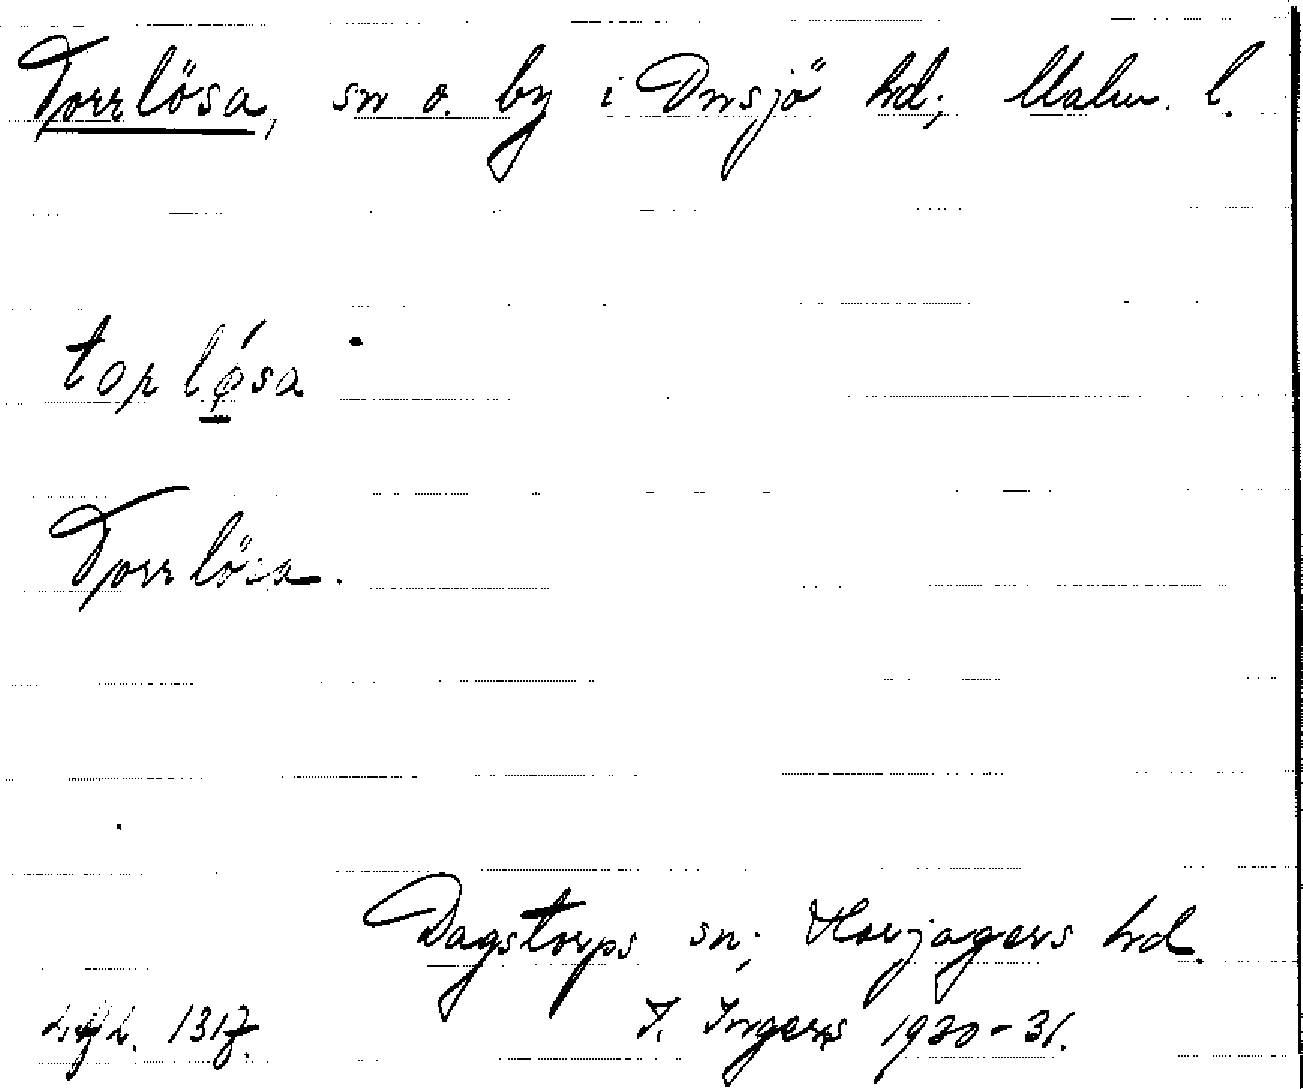 Torrlösa, sn o. by i Onsjö hd; Malm. l.
torlǿsa
Torrlösa.
Dagstorps sn; Harjagers hd.
1317.
I. Ingers 1920-31.